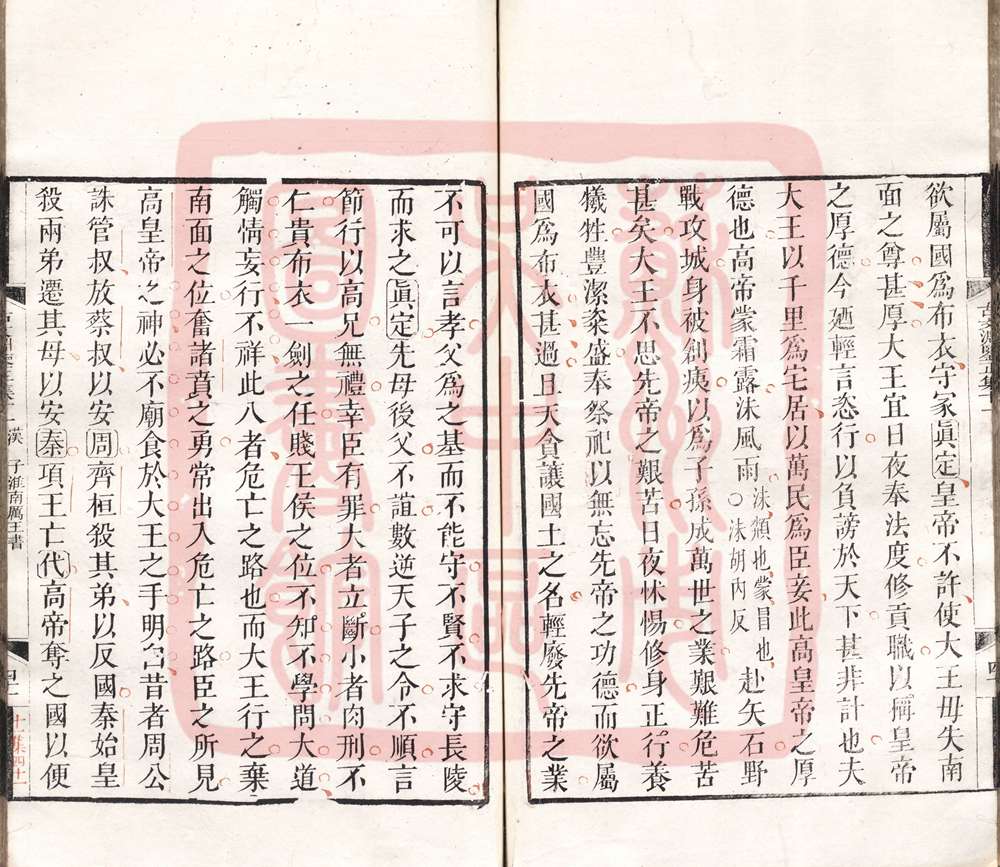 欲屬國爲布衣守冢眞定皇帝不許使大王毋失南
面之尊甚厚大王宜日夜奉法度修貢職以稱皇帝
之厚德今廼輕言恣行以負謗於天下甚非計也夫
大王以千里爲宅居以萬民爲臣妾此高皇帝之厚
德也高帝蒙霜露沬風雨沬頮也蒙冒也○沬胡內反赴矢石野
戰攻城身被創痍以爲子孫成萬世之業艱難危苦
甚矣大王不思先帝之艱苦日夜怵惕修身正行養
犧牲豐潔粢盛奉祭祀以無忘先帝之功德而欲屬
國爲布衣甚過且夫貪讓國土之名輕廢先帝之業
不可以言孝父爲之基而不能守不賢不求守長陵
而求之眞定先母後父不誼數逆天子之令不順言
節行以高兄無禮幸臣有罪大者立斷小者肉刑不
仁貴布衣一劍之任賤王侯之位不知不學問大道
觸情妄行不祥此八者危亡之路也而大王行之棄
南面之位奮諸賁之勇常出入危亡之路臣之所見
高皇帝之神必不廟食於大王之手明白昔者周公
誅管叔放蔡叔以安周齊桓殺其弟以反國秦始皇
殺兩弟遷其母以安秦項王亡代高帝奪之國以便
漢 予淮南厲王書